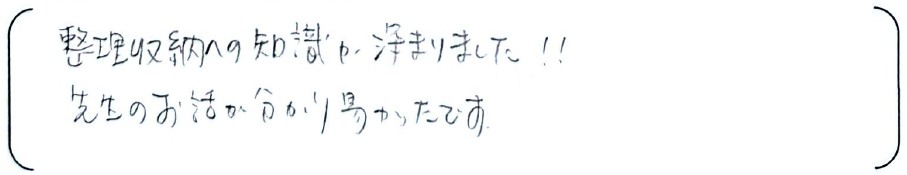 整理収納への知識が深まりました!!
先生のお話が分かり易かったです